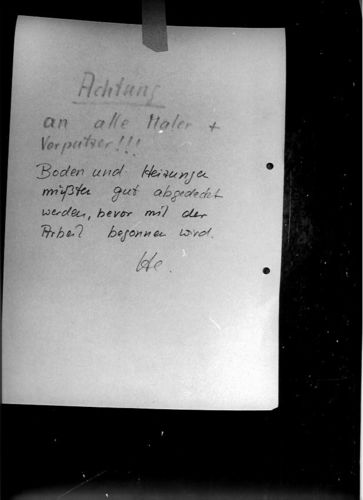 Achtung
an alle Maler +
Verputzer!!!
Boden und Heizungen
müßten gut abgedeckt
werden, bevor mit der
Arbeit begonnen wird.